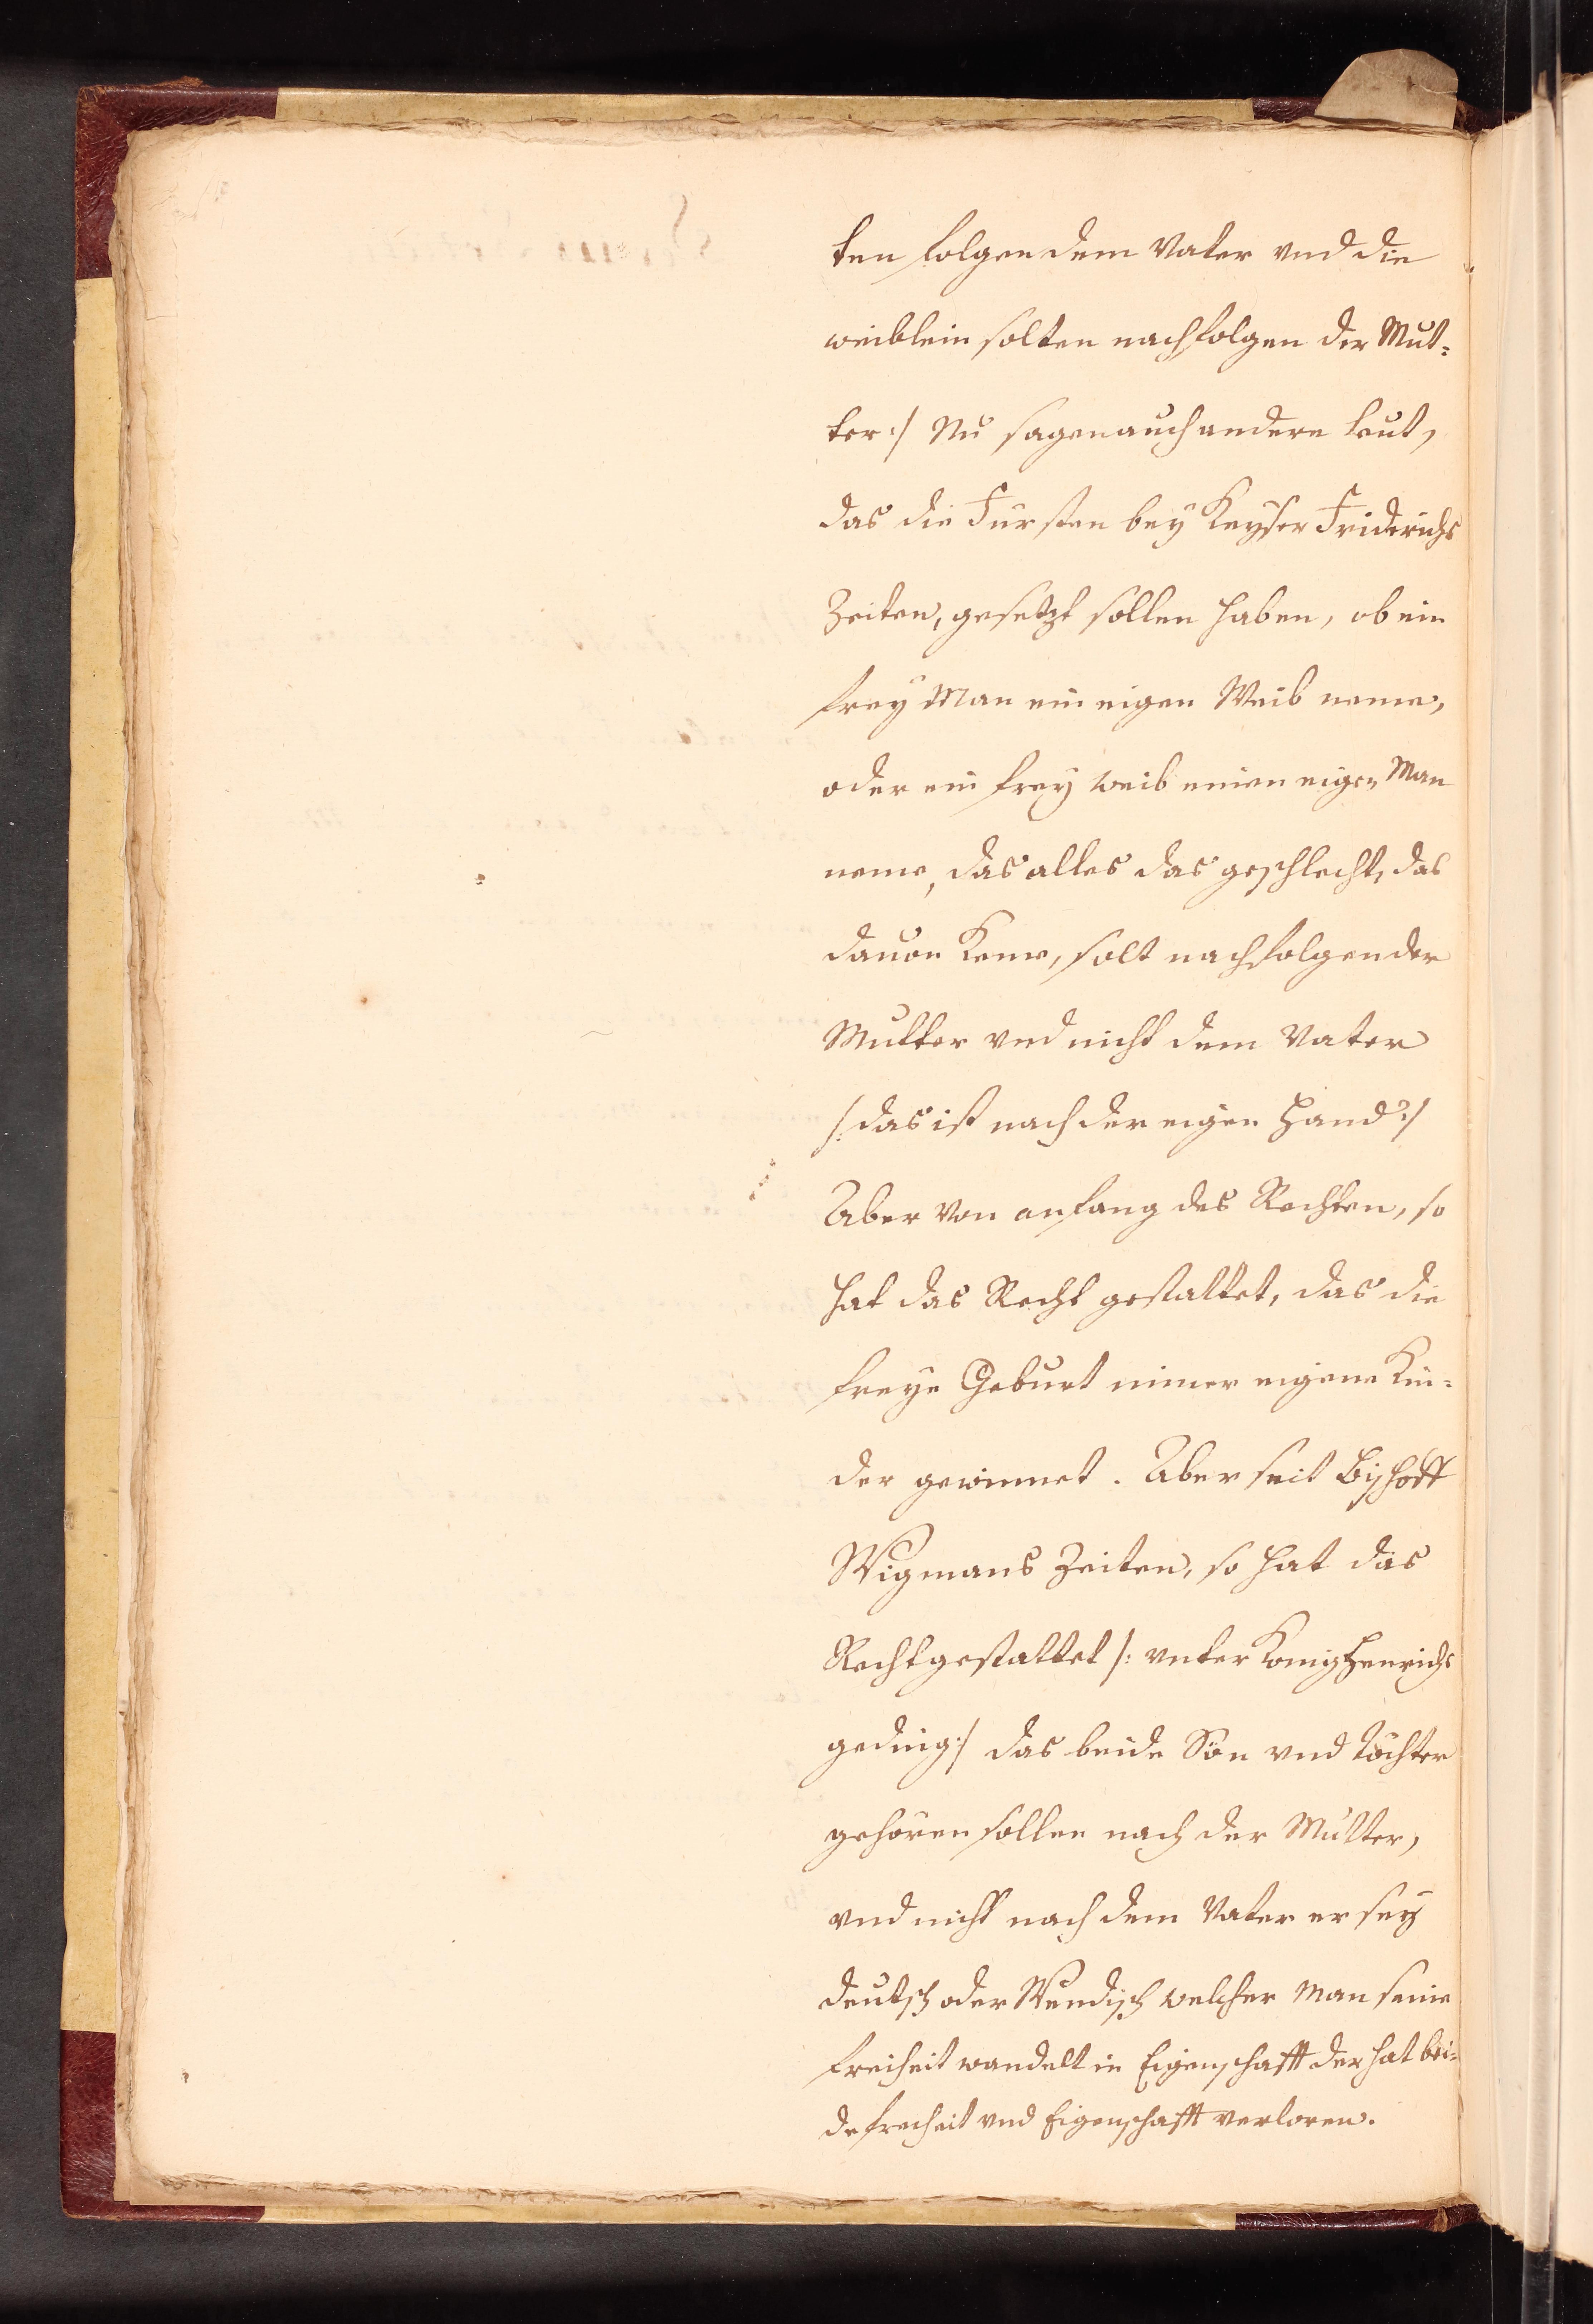 ten folgen dem Vater vnd die
weiblein solten nachfolgen der Mut-
ter :/ Nu sagen auch andere leut,
das die Fursten bey Keyser Friderichs
Zeiten, gesetzt sollen haben, ob ein
frey Man ein eigen Weib neme,
oder ein frey weib einen eigen Man
neme, das alles das geschlecht, das
dauon Keme, solt nachfolgen der
Mutter vnd nicht dem Vater
/: das ist nach der eigen Hand :/
Aber von anfang des Rechten, so
hat das Recht gestattet, das die
freye Geburt nimer eigene Kin-
der gewinnet. Aber seit Bischoff
Wigmans Zeiten, so hat das
Recht gestattet /: vnter Konig Henrichs
geding :/ das beide Sön vnd Töchter
gehören sollen nach der Mutter,
vnd nicht nach dem Vater er sey
deutsch oder Wendisch welcher Man seine
freiheit wandelt in Eigenschafft der hat bei-
de freiheit vnd Eigenschafft verloren.